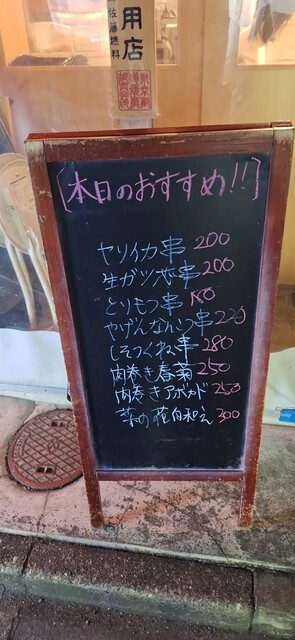 用店
佐藤燃料
[本日のおすすめ!!]
ヤリイカ串 200
生ガツ串 200
とりもつ串 180
やげんなんこつ串 220
しそつくね串 280
肉巻き春菊 250
肉巻きアボカド 250
菜の花白和え 300